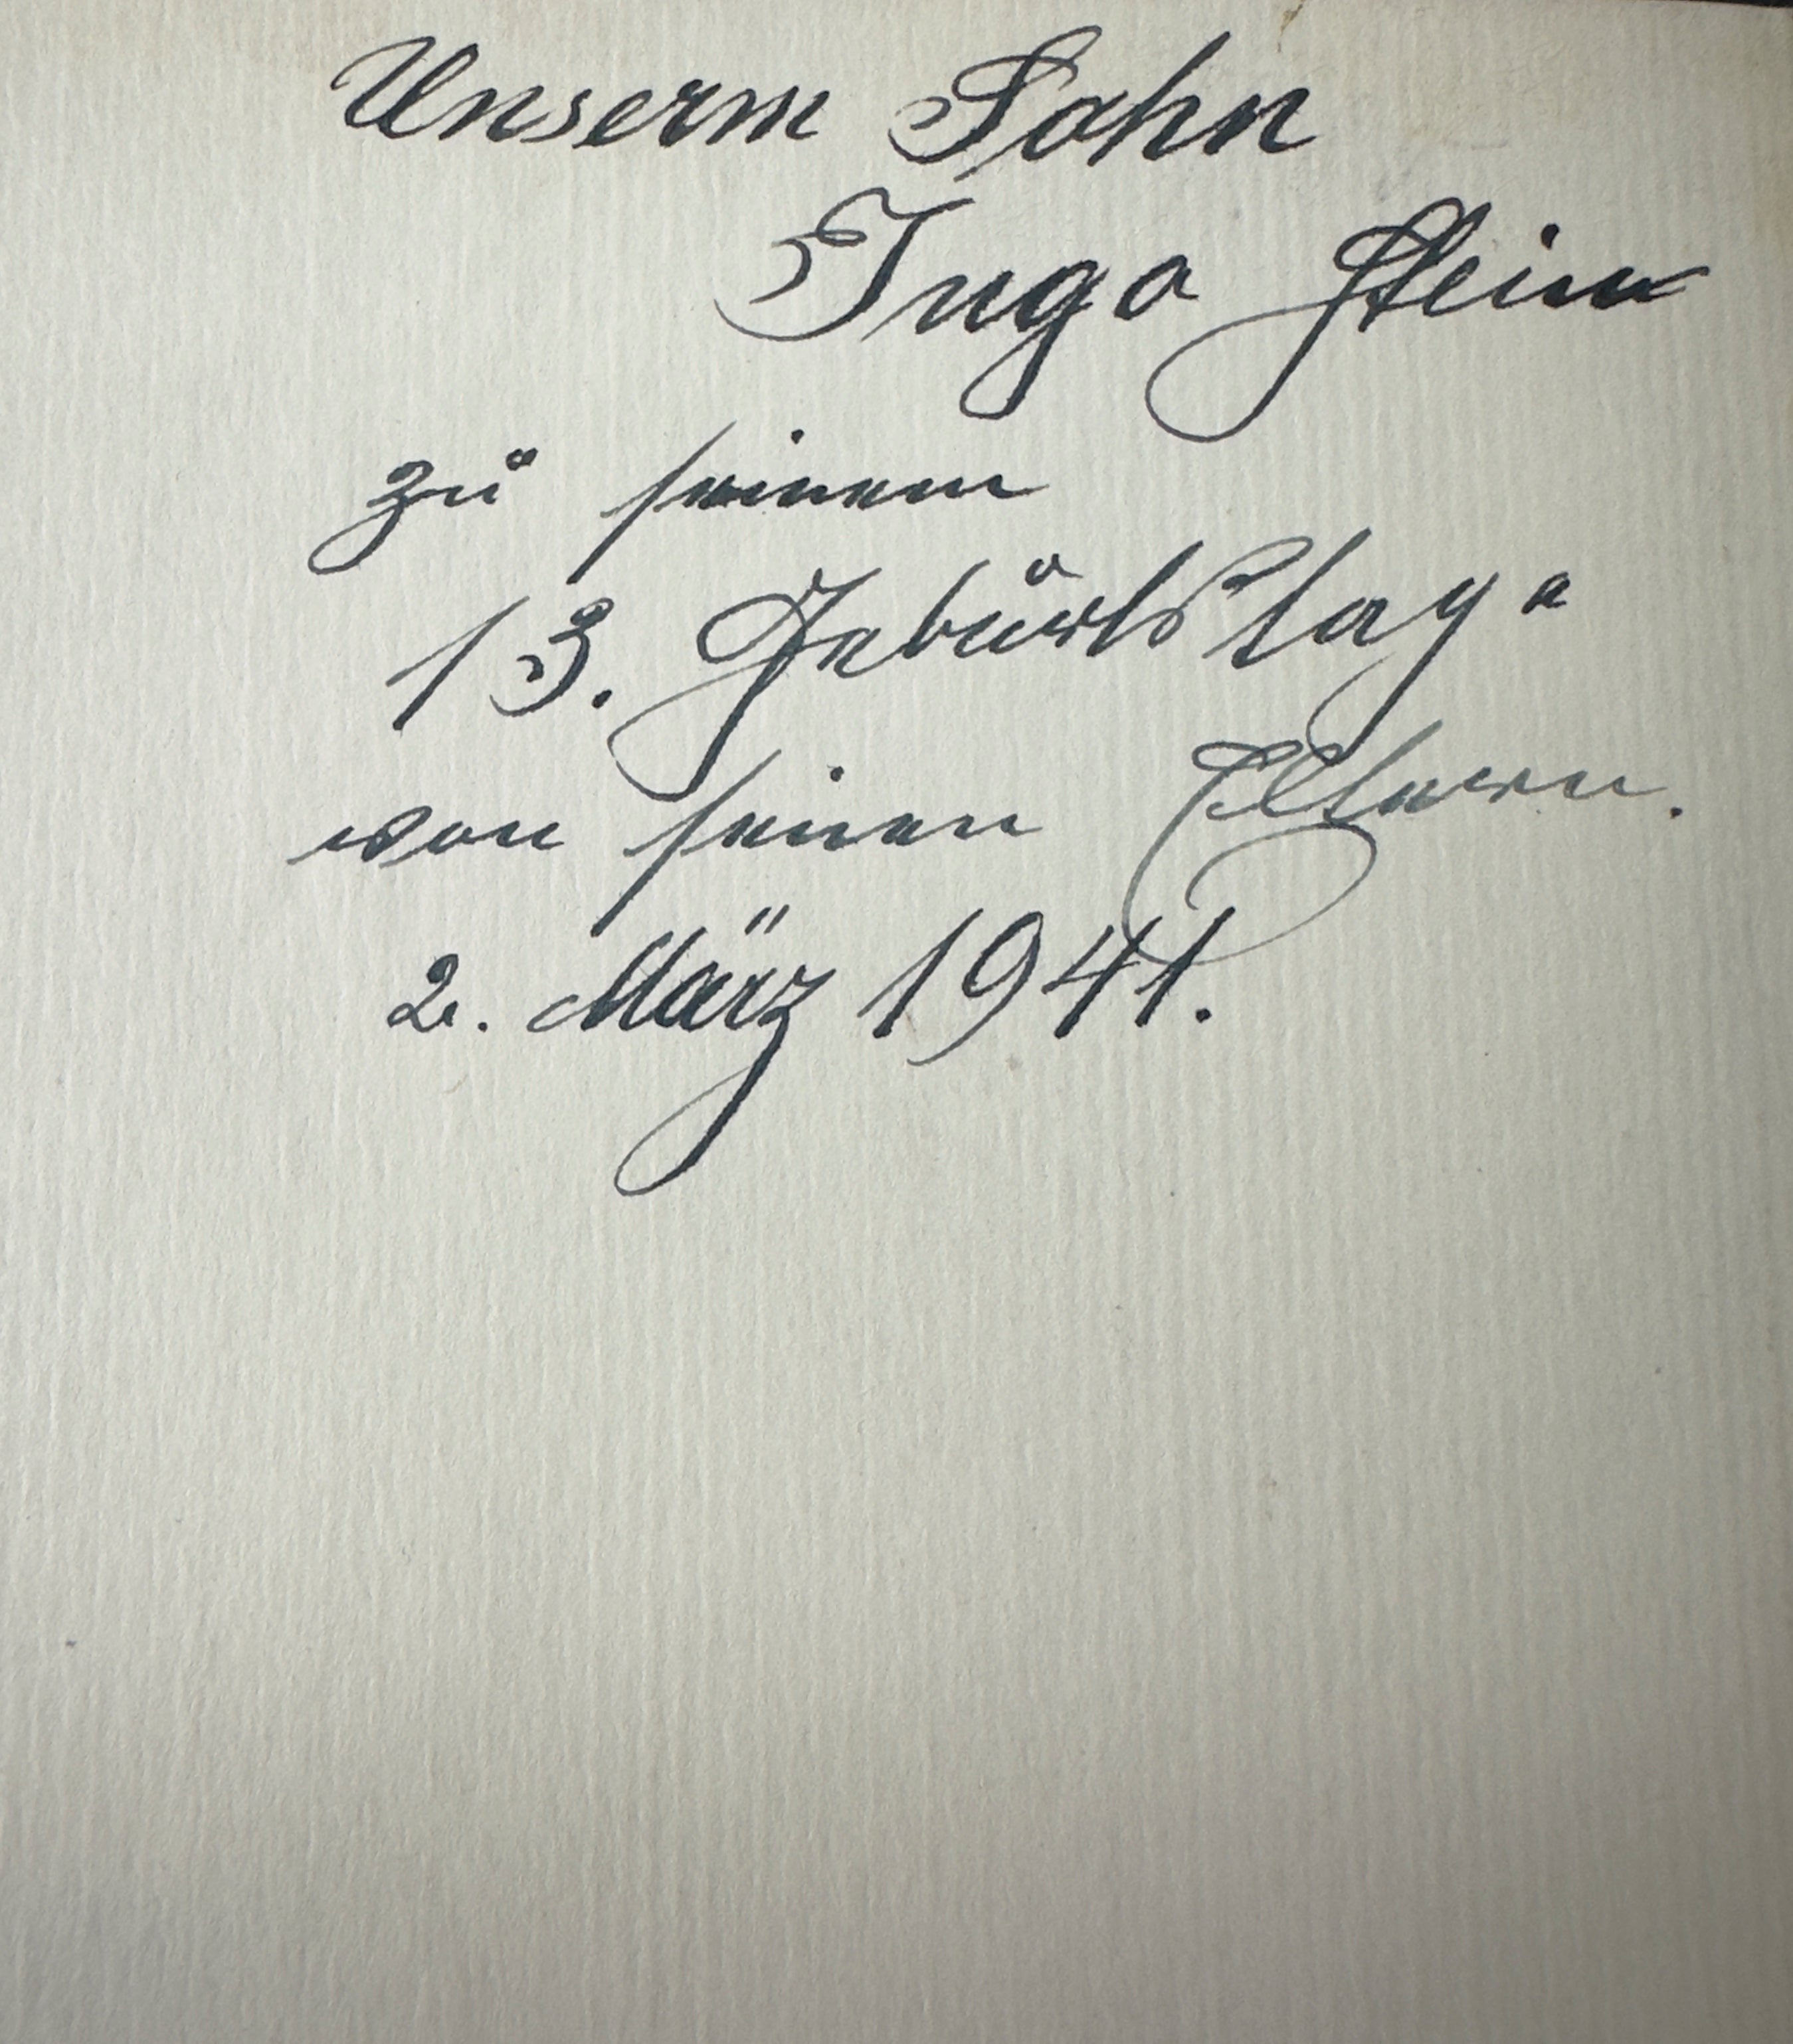 Unserm Sohn
Ingo Stein
zu seinem
13. Geburtstage
von seinen Eltern.
2. März 1941.